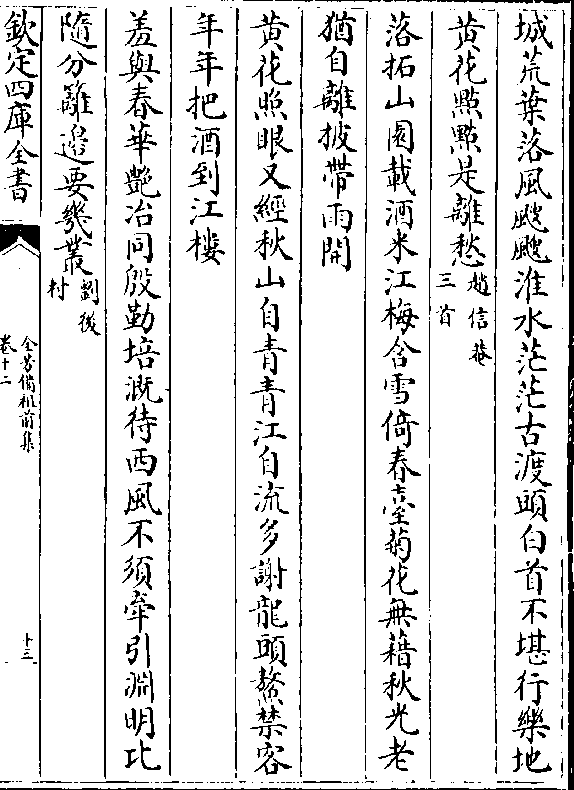 城荒葉落風颼颼淮水茫茫古渡頭白首不堪行樂地
黄花點點是離愁趙信菴三首
落拓山園載酒來江梅含雪倚春臺菊花無藉秋光老
猶自離披帶雨開
黄花照眼又經秋山自青青江自流多謝龍頭鰲禁客
年年把酒到江樓
羞與春華艶冶同殷勤培溉待西風不須牽引淵明比
隨分籬邉要幾叢劉後村
欽定四庫全書
全芳備祖前集
卷十二
十三